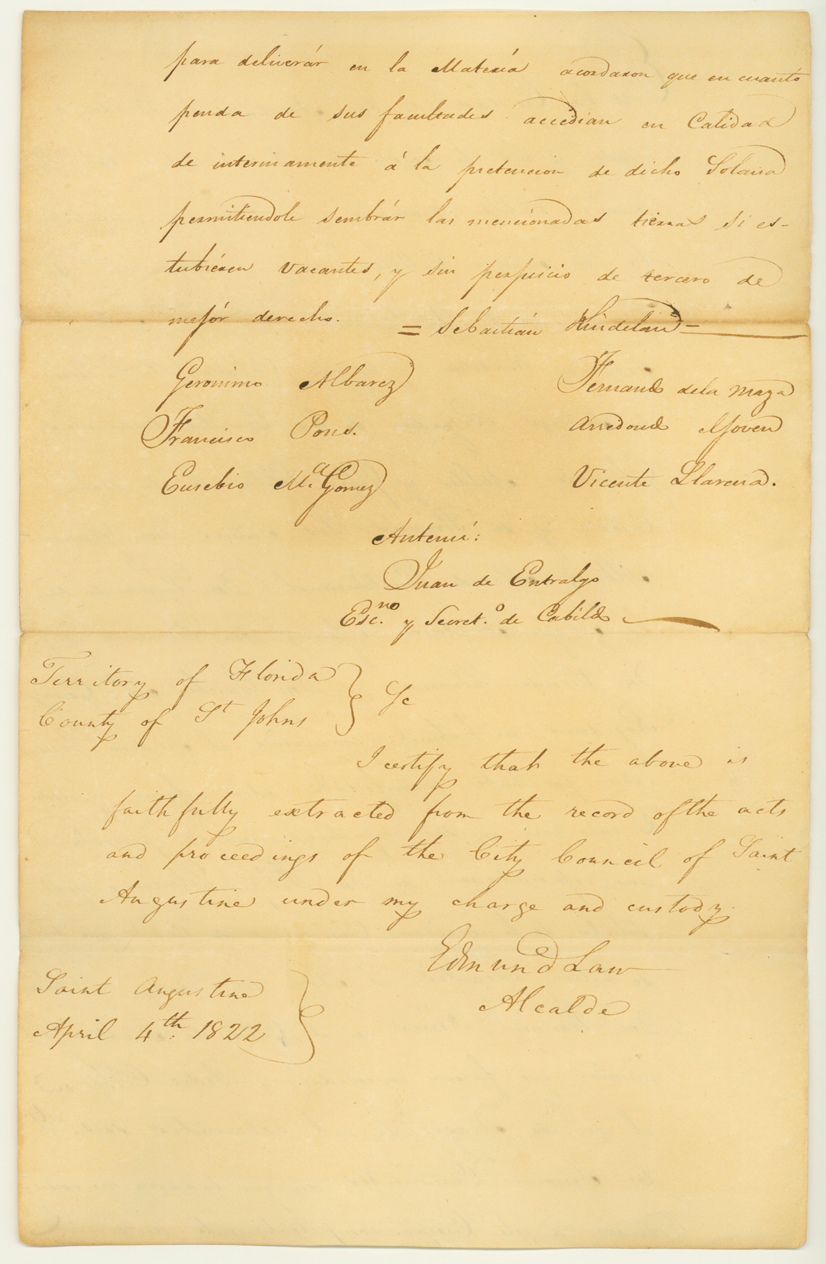 para deliverár en la Matería acordaron que en cuanto
penda de sus facultades accedian en Calidad
de interinamente á la pretencion de dicho Solana
permitiendole sembrár las mencionadas tierras si es-
tubiésen vacantes, y sin perjuicio de tercero de
mejór derecho. = Sebastián Kindelan =
Geronimo Albarez Fernando de la Maza
Francisco Pons. Arredondo Yjoven
Eusebio Ma. Gomez Vicente Llarena.
Antemi:
Juan de Entralgo
Esc.no y Secret.o de Cabildo
Territory of Florida } Sc
County of St Johns
I certify that the above is
faithfully extracted from the record of the acts
and proceedings of the City Council of Saint
Augustine under my charge and custody.
Edmund Law
Alcalde
Saint Augustine }
April 4th. 1822